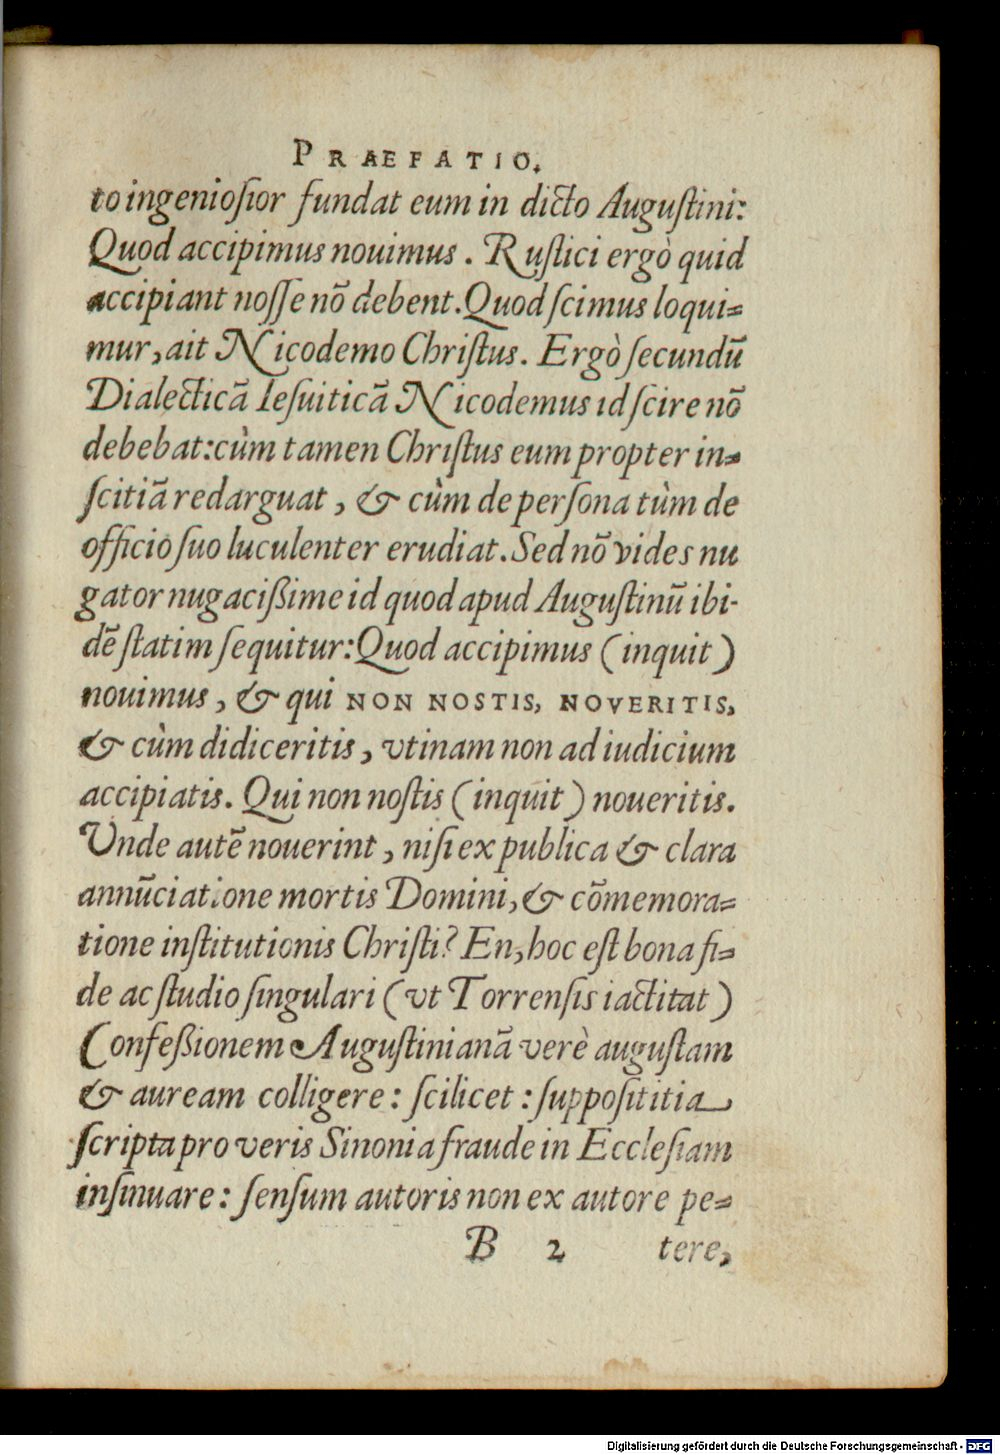 PRAEFATIO.
to ingeniosior fundat eum in dicto Augustini:
Quod accipimus nouimus. Rustici ergò quid
accipiant nosse nõ debent. Quod scimus loqui-
mur, ait Nicodemo Christus. Ergò secundũ
Dialecticã Iesuiticã Nicodemus id scire nõ
debebat: cùm tamen Christus eum propter in-
scitiã redarguat, & cùm de persona tùm de
officio suo luculenter erudiat. Sed nõ vides nu
gator nugacißime id quod apud Augustinũ ibi-
dẽ statim sequitur: Quod accipimus (inquit)
nouimus, & qui NON NOSTIS, NOVERITIS,
& cùm didiceritis, vtinam non ad iudicium
accipiatis. Qui non nostis (inquit) noueritis.
Vnde autẽ nouerint, nisi ex publica & clara
annũciatione mortis Domini, & cõmemora-
tione institutionis Christi? En, hoc est bona fi-
de ac studio singulari (vt Torrensis iactitat)
Confeßionem Augustinianã verè augustam
& auream colligere: scilicet: supposititia
scripta pro veris Sinonia fraude in Ecclesiam
insinuare: sensum autoris non ex autore pe-
B 2 tere,
Digitalisierung gefördert durch die Deutsche Forschungsgemeinschaft - DFG